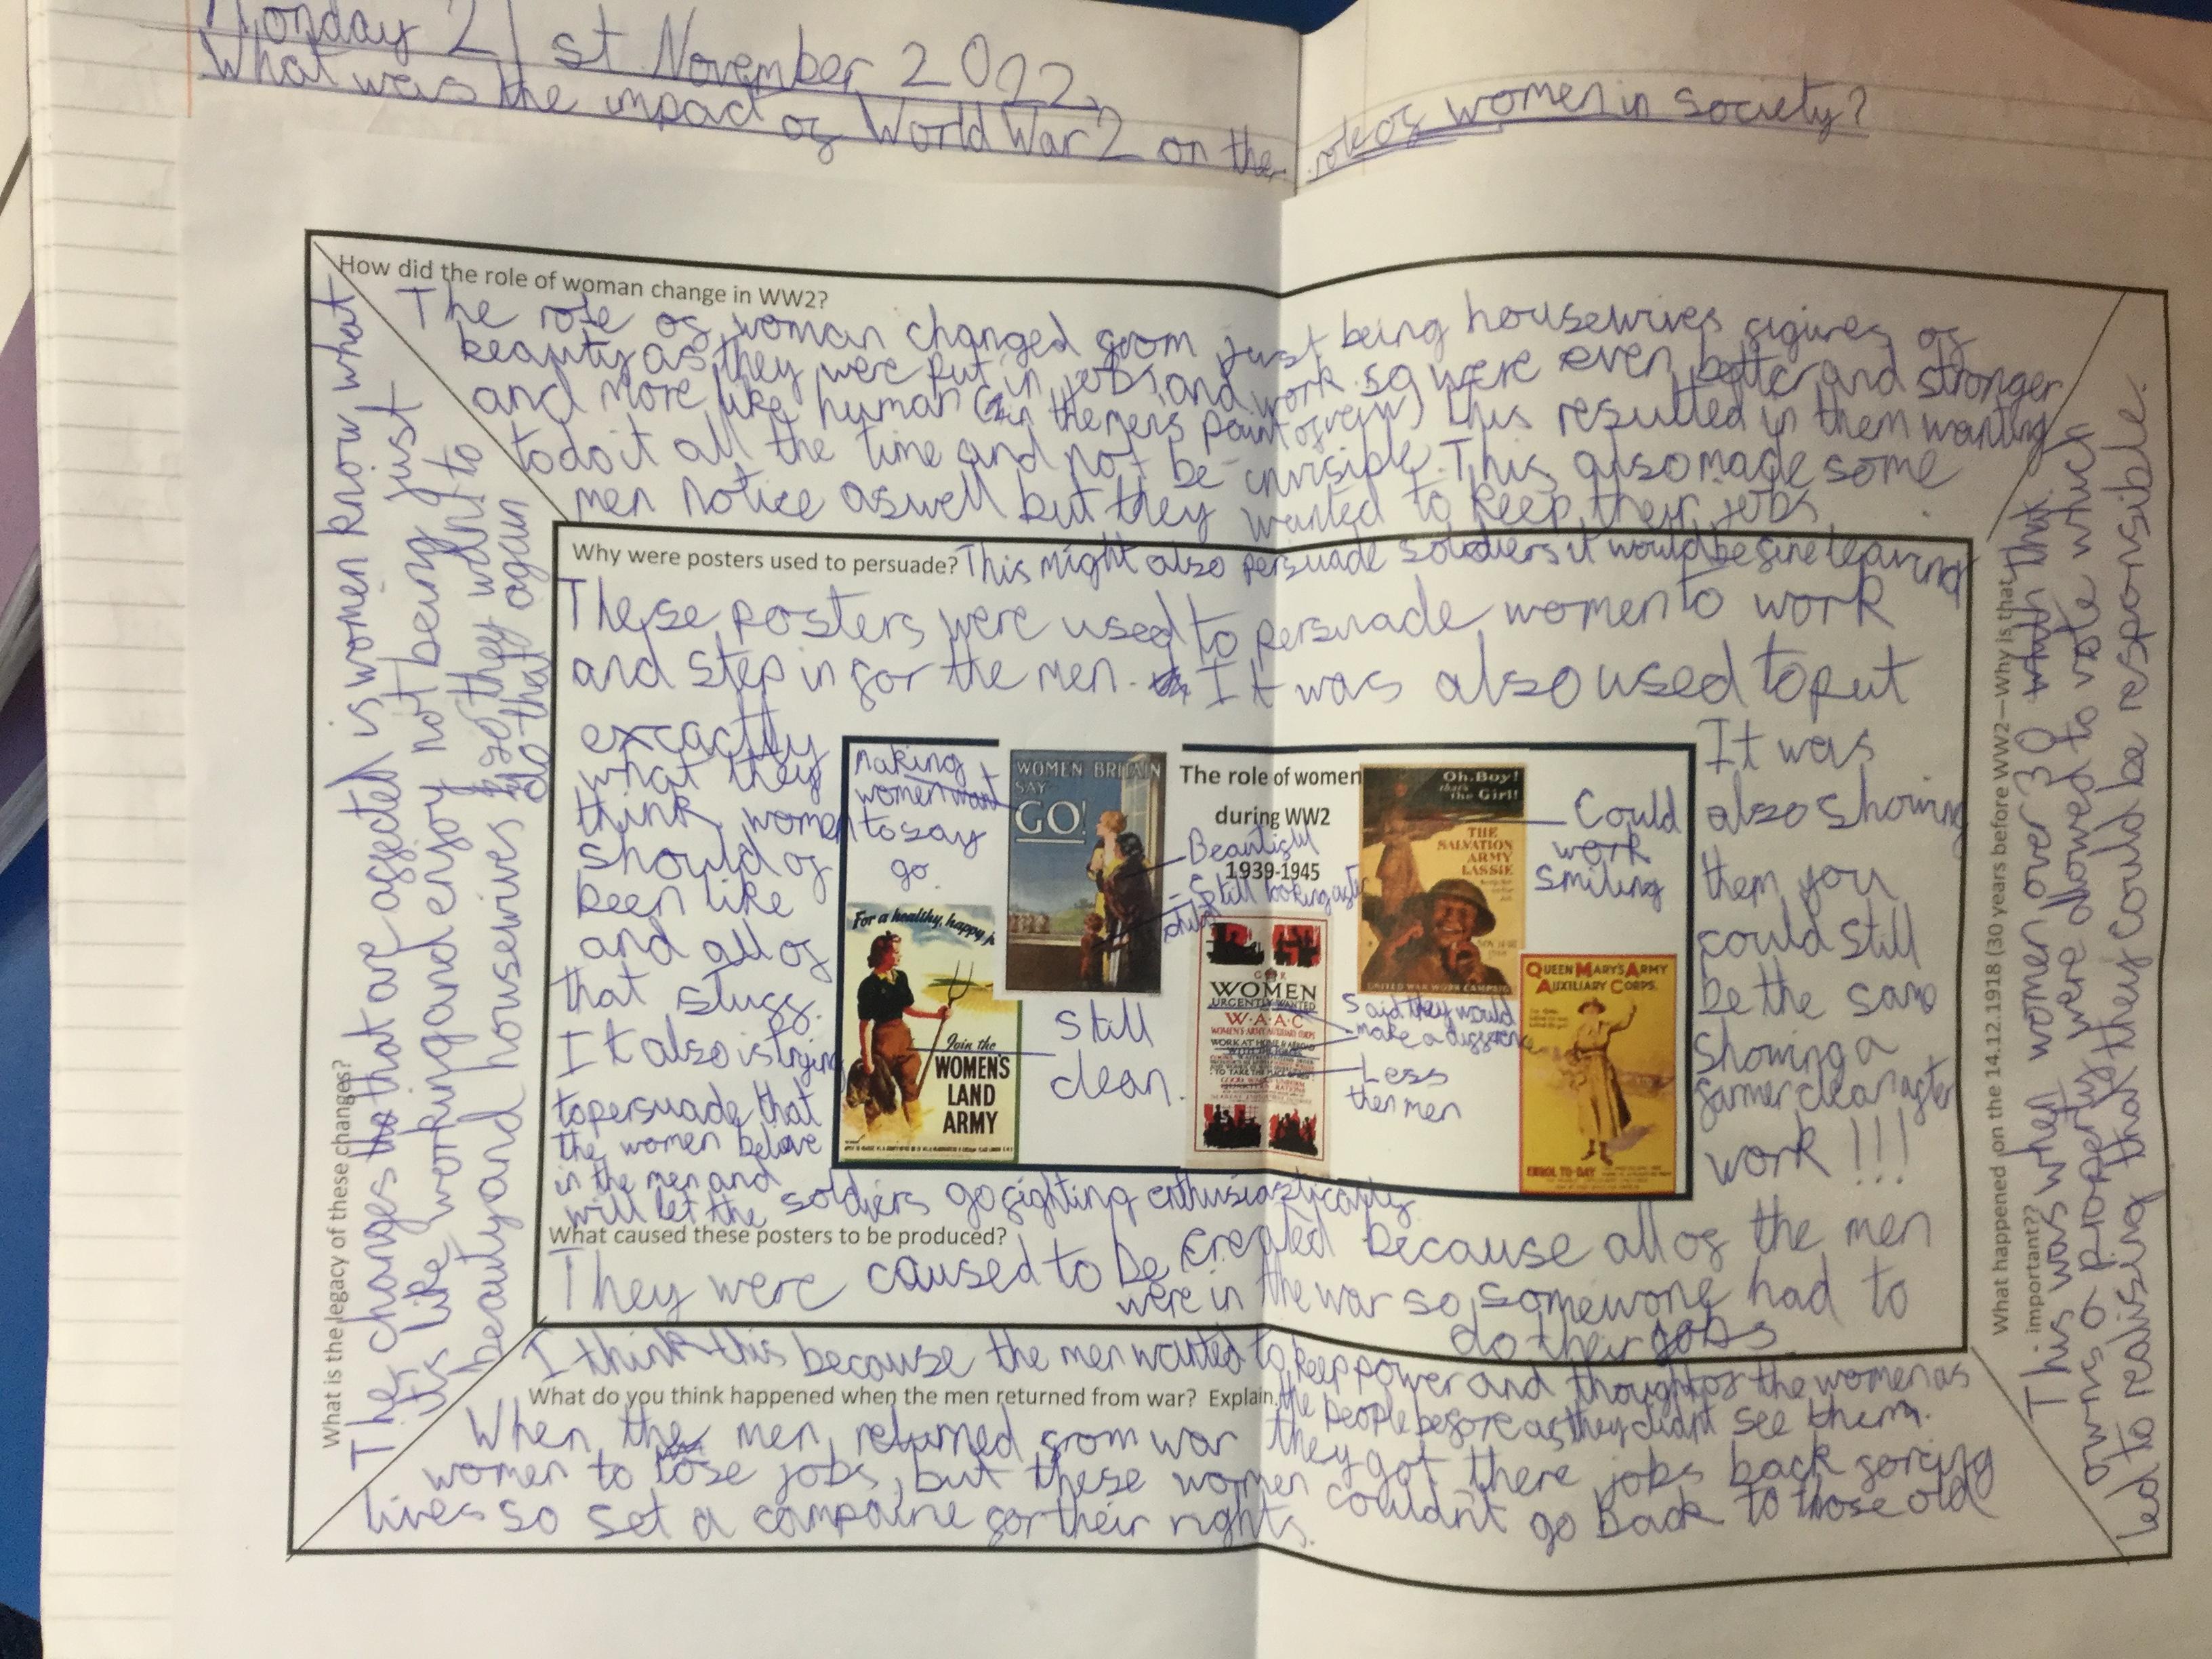 Monday 21st November 2022
What was the impact of World War 2 on the role of women in society?
How did the role of woman change in WW2?
The role of woman changed from just being housewives figures of
beauty as they were put in jobs and work so were even better and stronger
and more like human (in the mens point of veiw) This resulted in them wanting
to do it all the time and not be invisible. This also made some
men notice aswell but they wanted to keep their jobs.
Why were posters used to persuade? This might also persuade soldiers it would be fine leaving
These posters were used to persuade women to work
and step in for the men. It was also used to put
excactly
what they
think women
should of
been like
and all of
that stuff.
It also is trying
to persuade that
the women beleve
in the men and
will let the soldiers go fighting enthusiastically
Making
women want
to say
go.
WOMEN BRITAIN
SAY
GO!
The role of women
during WW2
1939-1945
Beautiful
Still looking after
child
Oh, Boy!
that's the Girl!
THE
SALVATION
ARMY
LASSIE
UNITED WAR WORK CAMPAIGN
Could
work
Smiling
For a healthy, happy j
Join the
WOMEN'S
LAND
ARMY
Still
clean.
G R
WOMEN
URGENTLY WANTED
W·A·A·C
WOMEN'S ARMY AUXILIARY CORPS
WORK AT HOME & ABROAD
WITH THE FORCES
TO TAKE THE PLACE OF MEN
Said they would
make a difference
Less
then men
QUEEN MARY'S ARMY
AUXILIARY CORPS.
ENROL TO-DAY
It was
also showing
them you
could still
be the same
Showing a
farmer clean after
work!!!
What caused these posters to be produced?
They were caused to be created because all of the men
were in the war so somewone had to
do their jobs.
I think this because the men wanted to keep power and thought of the women as
the people before as they didnt see them.
What do you think happened when the men returned from war? Explain.
When the men returned from war they got there jobs back forcing
women to lose jobs, but these women couldn't go back to those old
lives so set a campaine for their rights.
What is the legacy of these changes?
The changes that are affected is women know what
its like working and enjoy not being just
beauty and housewives so they want to
do that again
What happened on the 14.12.1918 (30 years before WW2—Why is that
important??
This was when women over 30 with that
owns a property were allowed to vote which
led to realising that they could be responsible.